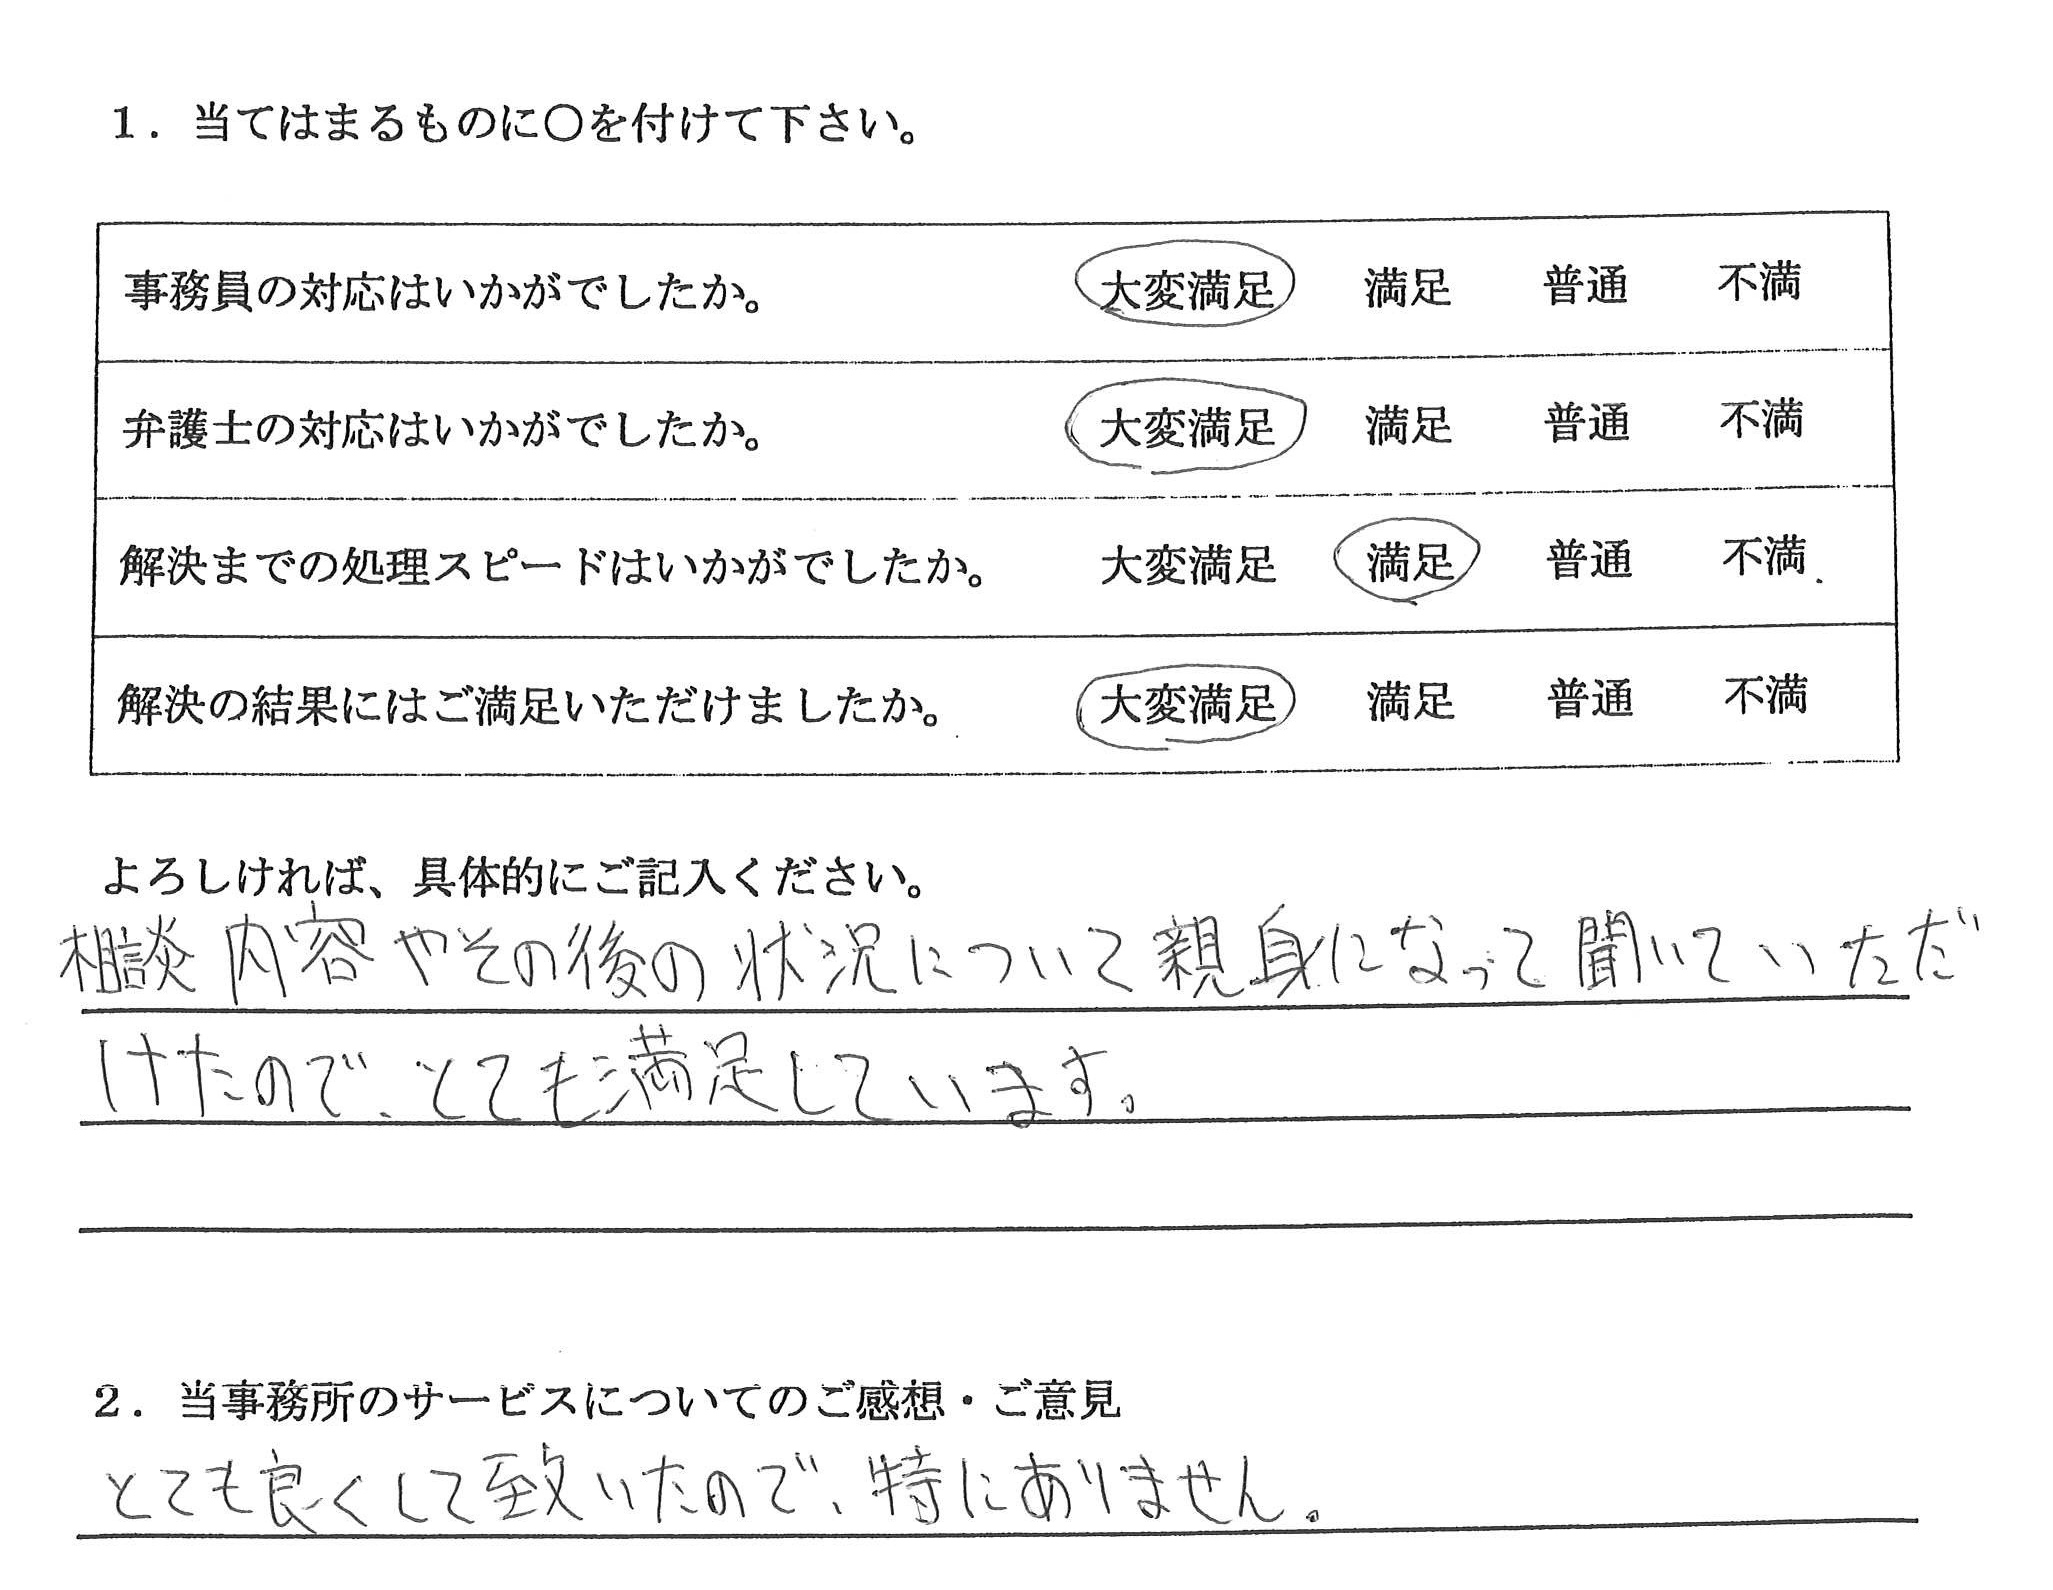 1．当てはまるものに○を付けて下さい。
事務員の対応はいかがでしたか。 大変満足 満足 普通 不満
弁護士の対応はいかがでしたか。 大変満足 満足 普通 不満
解決までの処理スピードはいかがでしたか。 大変満足 満足 普通 不満
解決の結果にはご満足いただけましたか。 大変満足 満足 普通 不満
よろしければ、具体的にご記入ください。
相談内容やその後の状況について親身になって聞いていただ
けたので、とても満足しています。
2．当事務所のサービスについてのご感想・ご意見
とても良くして致いたので、特にありません。